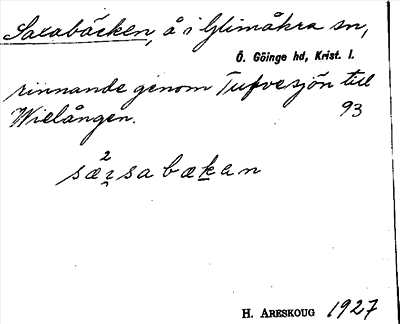 Saxabäcken, å i Glimåkra sn,
Ö. Göinge hd, Krist. l.
rinnande genom Tufvesjön till
Wielången. 93
2
sæɪsabækan
H. ARESKOUG 1927